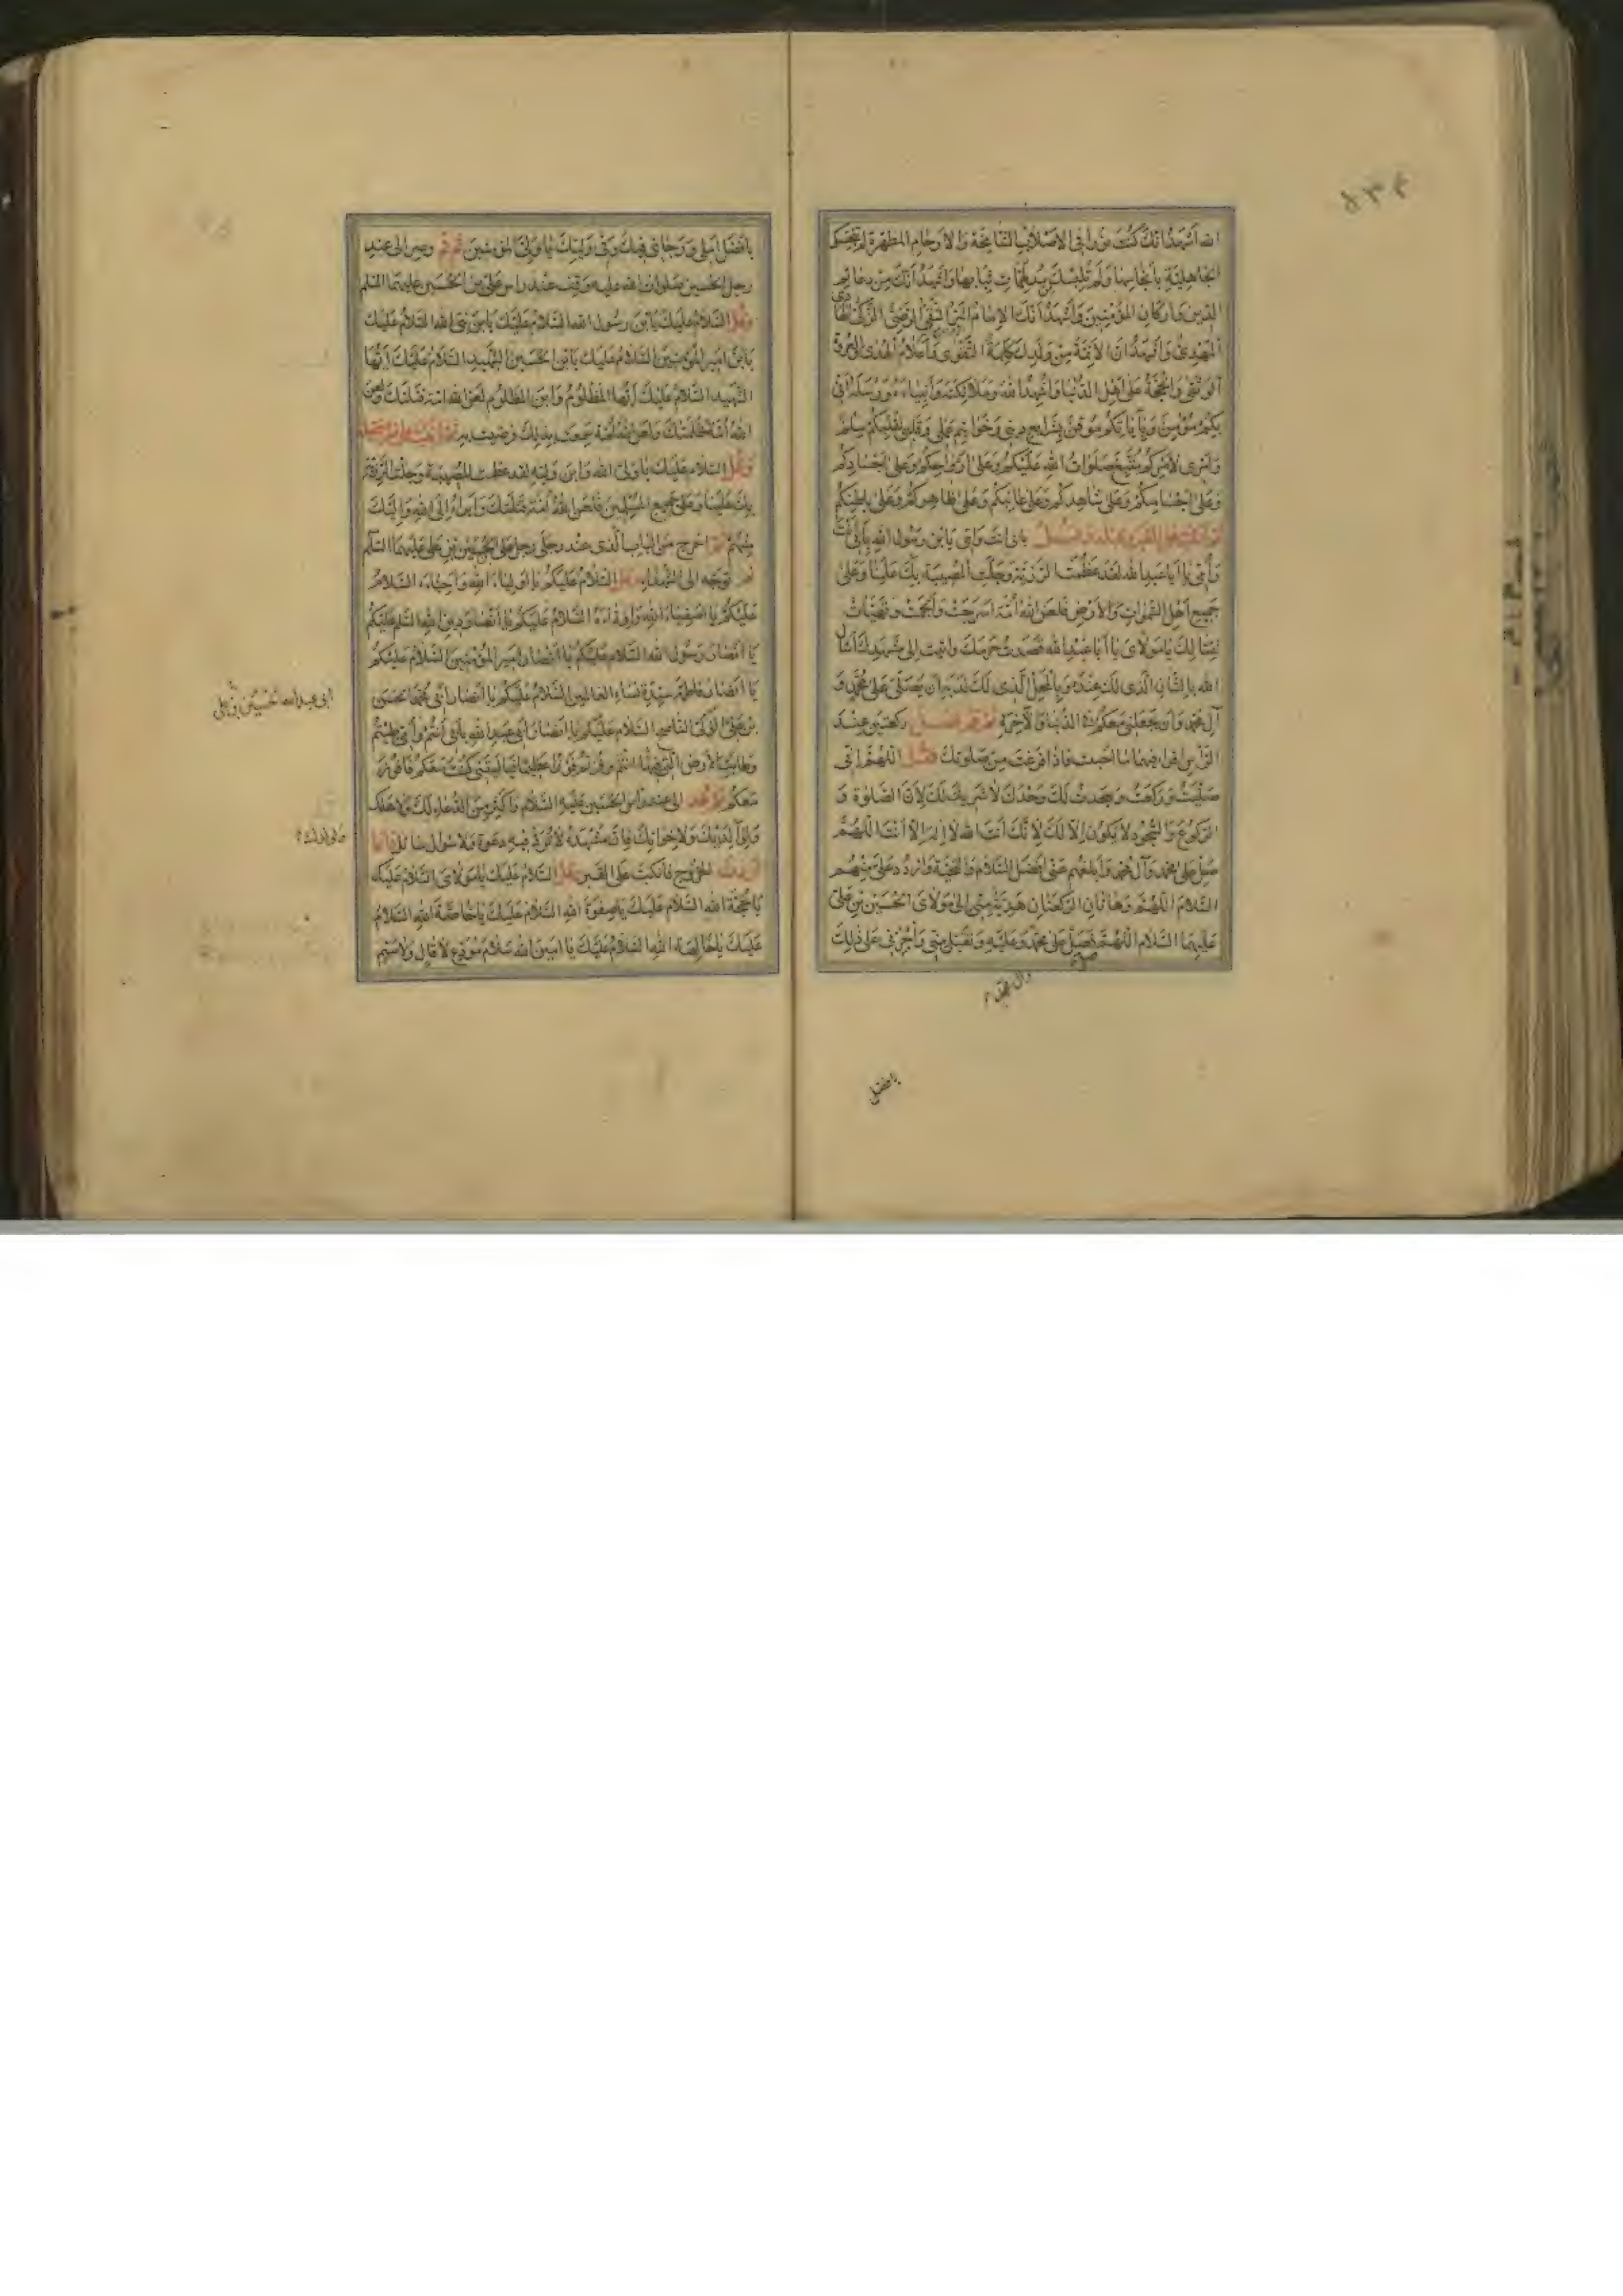 الله أشهد أنك كنت نورا في الأصلاب الشامخة والأرحام المطهرة لم تنجسك
الجاهلية بأنجاسها ولم تلبسك من مدلهمات ثيابها وأشهد أنك من دعائم
الدين وأركان المؤمنين وأشهد أنك الإمام البر التقي الرضي الزكي الهادي
المهدي وأشهد أن الأئمة من ولدك كلمة التقوى وأعلام الهدى والعروة
الوثقى والحجة على أهل الدنيا وأشهد الله وملائكته وأنبياءه ورسله أني
بكم مؤمن وبإيابكم موقن بشرايع ديني وخواتيم عملي وقلبي لقلبكم سلم
وأمري لأمركم متبع صلوات الله عليكم وعلى أرواحكم وعلى أجسادكم
وعلى أجسامكم وعلى شاهدكم وعلى غائبكم وعلى ظاهركم وعلى باطنكم
ثم انكب على القبر وقبله وقل بأبي أنت وأمي يا بن رسول الله بأبي أنت
وأمي يا أبا عبد الله لقد عظمت الرزية وجلت المصيبة بك علينا وعلى
جميع أهل السموات والأرض فلعن الله أمة أسرجت وألجمت وتهيأت
لقتالك يا مولاي يا أبا عبد الله قصدت حرمك وأتيت إلى مشهدك أسأل
الله بالشأن الذي لك عنده وبالمحل الذي لك لديه أن يصلي على محمد و
آل محمد وأن يجعلني معكم في الدنيا والآخرة ثم قم فصل ركعتين عند
الرأس اقرأ فيهما ما أحببت فإذا فرغت من صلوتك فقل اللهم إني
صليت وركعت وسجدت لك وحدك لا شريك لك لأن الصلوة و
الركوع والسجود لا يكون إلا لك لأنك أنت الله لا إله إلا أنت اللهم
صل على محمد وآل محمد وأبلغهم عني أفضل السلام والتحية واردد علي منهم
السلام اللهم وهاتان الركعتان هدية مني إلى مولاي الحسين بن علي
عليهما السلام اللهم فصل على محمد وعليه وتقبل مني وأجرني على ذلك
وآل محمد
بافضل
بأفضل أملي ورجائي فيك وفي وليك يا ولي المؤمنين ثم قم وصر إلى عند
رجل الحسين صلوات الله عليه وقف عند رأس علي بن الحسين عليهما السلم
وقل السلام عليك يا بن رسول الله السلام عليك يا بن نبي الله السلام عليك
يا بن أمير المؤمنين السلام عليك يا بن الحسين الشهيد السلام عليك أيها
الشهيد السلام عليك أيها المظلوم وابن المظلوم لعن الله أمة قتلتك ولعن
الله أمة ظلمتك ولعن الله أمة سمعت بذلك فرضيت به ثم انكب على قبره وقبله
وقل السلام عليك يا ولي الله وابن وليه لقد عظمت المصيبة وجلت الرزية
بك علينا وعلى جميع المسلمين فلعن الله أمة قتلتك وأبرأ إلى الله وإليك
منهم ثم اخرج من الباب الذي عند رجلي علي بن الحسين بن علي عليهما السلم
ثم توجه إلى الشهداء وقل السلام عليكم يا أولياء الله وأحباءه السلام
عليكم يا أصفياء الله وأوداءه السلام عليكم يا أنصار دين الله السلم عليكم
يا أنصار رسول الله السلام عليكم يا أنصار أمير المؤمنين السلام عليكم
يا أنصار فاطمة سيدة نساء العالمين السلام عليكم يا أنصار أبي محمد الحسن
بن علي الزكي الناصح السلام عليكم يا أنصار أبي عبد الله بأبي أنتم وأمي طبتم
وطابت الأرض التي فيها دفنتم وفزتم فوزا عظيما فيا ليتني كنت معكم فأفوز
معكم ثم عد إلى عند رأس الحسين عليه السلام وأكثر من الدعاء لك ولأهلك
ولولديك ولإخوانك فإن مشهده لا ترد فيه دعوة ولا سؤل سائل فإذا
أردت الخروج فانكب على القبر وقل السلام عليك يا مولاي السلام عليك
يا حجة الله السلام عليك يا صفوة الله السلام عليك يا خاصة الله السلام
عليك يا خالصة الله السلام عليك يا أمين الله سلام مودع لا قال ولا سئم
أبي عبد الله الحسين بن علي